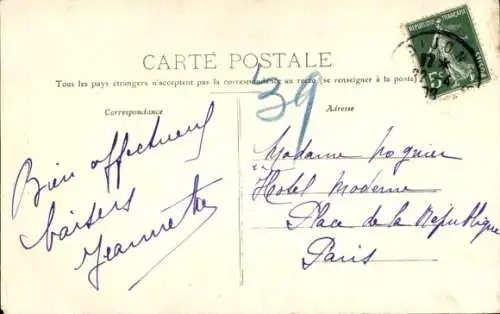 RÉPUBLIQUE FRANÇAISE
DIJON
CARTE POSTALE
Tous les pays étrangers n'acceptent pas la correspondance au recto (se renseigner à la poste)
39
Correspondance
Adresse
Bien affectueux
baisers
Jeannette
Madame Nognier
Hotel Moderne
Place de la République
Paris